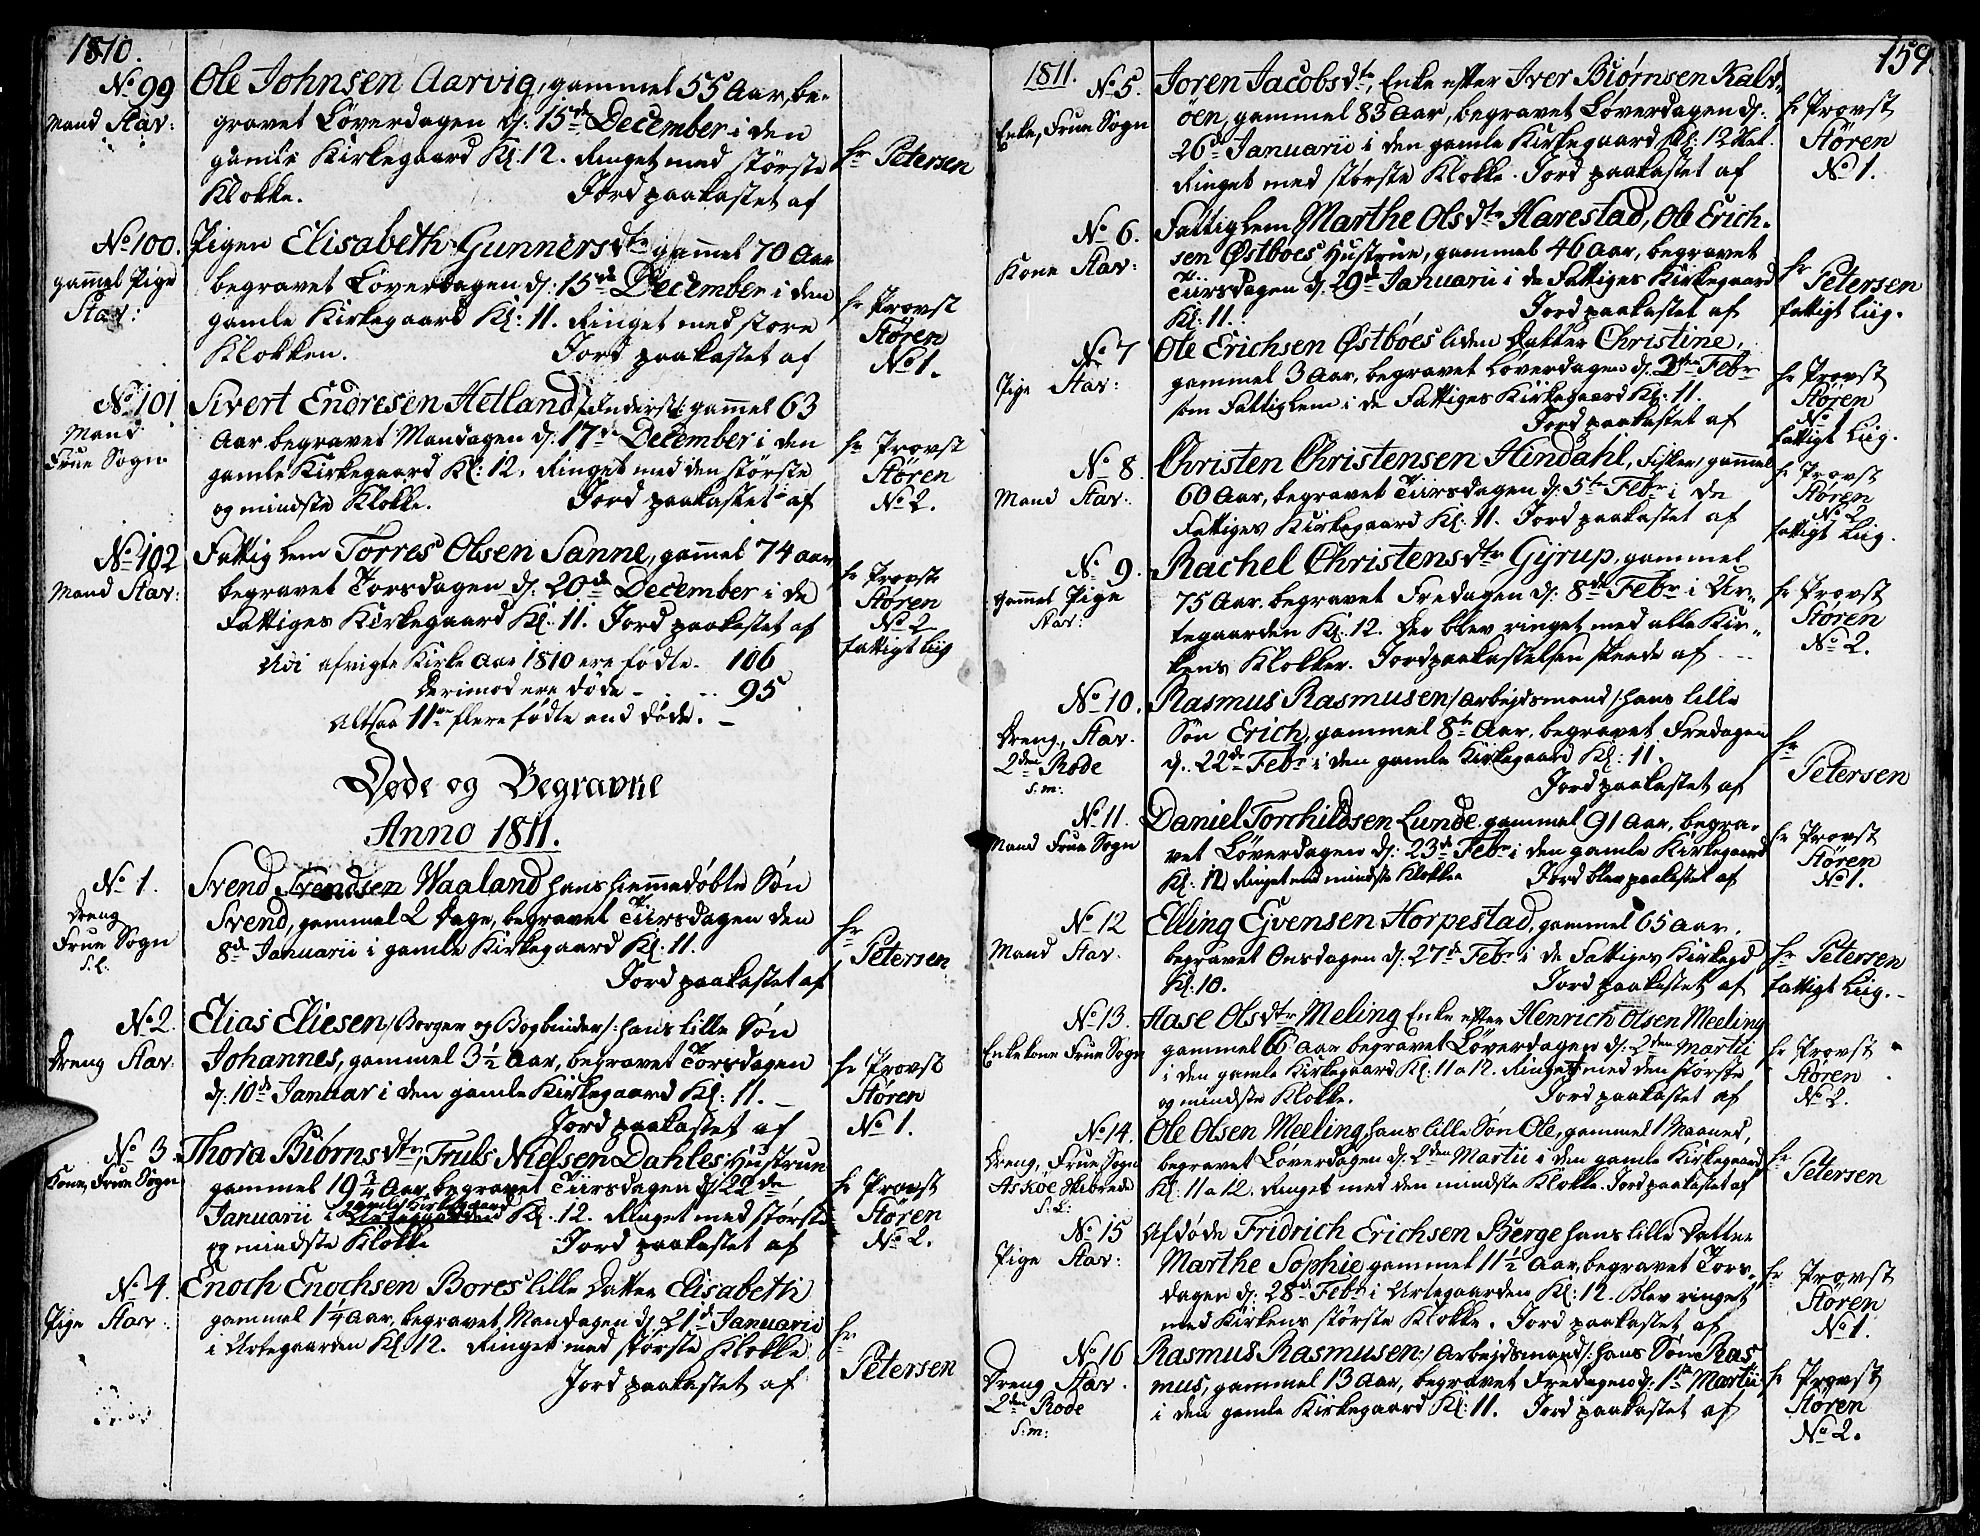 1810.
No 99
Mand Stav:
Ole Johnsen Aarvig, gammel 55 Aar, be-
gravet Löverdagen d: 15de December i den
gamle Kirkegaard Kl: 12. Ringet med störste
Klokke. Jord paakastet af
hr Petersen
No 100.
gam̄el Pige
Stav:
Pigen Elisabeth Gunnersdtr gam̄el 70 Aar
begravet Löverdagen d: 15de December i den
gamle Kirkegaard Kl: 11. Ringet med store
Klokken. Jord paakastet af
hr Provst
Stören
No 1.
No 101
Mand
Frue Sogn
Sivert Endresen Hetland /: Inderst :/ gam̄el 63
Aar begravet Mandagen d: 17de December i den
gamle Kirkegaard Kl: 12. Ringet med den störste
og mindste Klokke. Jord paakastet af
hr Provst
Stören
No 2.
No 102
Mand Stav:
Fattiglem Torres Olsen Sanne, gam̄el 74 aar
begravet Torsdagen d: 20de December i de
Fattiges Kirkegaard Kl: 11. Jord paakastet af
hr Provst
Stören
No 2
fattigt Liig
Udi afvigte Kirke Aar 1810 ere födte - 106
Derimod ere döde - 95
Altsaa 11ve flere födte end döde. -
Døde og Begravne
Anno 1811.
No 1.
Dreng
Frue Sogn
S.L:
Svend Svendsen Waaland hans hiemmedöbte Sön
Svend, gammel 2 Dage, begravet Tiirsdagen den
8de Januarii i gamle Kirkegaard Kl: 11.
Jord paakastet af
hr
Petersen
No 2.
Dreng Stav:
Elias Eliesen /: Borger og Bogbinder :/ hans lille Sön
Johannes, gammel 3½ Aar, begravet Torsdagen
d: 10de Januar i den gamle Kirkegaard Kl: 11. -
Jord paakastet af
hr Provst
Stören
No 1.
No 3
Kone, Frue Sogn
Thora Biörnsdtr, Truls Nielsen Dahles Hustrue
gammel 19¾ Aar, begravet Tiirsdagen d: 22de
Januarii i gamle Kirkegaard Urtegaarden Kl. 12. Ringet med störste
og mindste Klokke Jord paakastet af
hr Provst
Stören
No 2.
No 4.
Pige Stav:
Enoch Enochsen Bores lille Datter Elisabeth
gammel 1¼ Aar, begravet Mandagen d: 21de Januarii
i Urtegaarden Kl: 12. Ringet med störste Klokke
Jord paakastet af
hr
Petersen
159
1811.
No 5.
Enke, Frue Sogn
Joren Jacobsdtr, Enke efter Iver Biörnsen Kalv-
öen, gammel 83 Aar, begravet Löverdagen d:
26de Januarii i den gamle Kirkegaard Kl: 12
Ringet med störste Klokke. Jord paakastet af
hr Provst
Stören
No 1.
No 6.
Kone Stav:
Fattiglem Marthe Olsdtr Harestad, Ole Erich-
sen Östboes Hustrue, gammel 46 Aar, begravet
Tiirsdagen d: 29de Januarii i de Fattiges Kirkegaard
Kl: 11. Jord paakastet af
hr
Petersen
fattigt Liig.
No 7
Pige Stav:
Ole Erichsen Östboes liden Datter Christine,
gammel 3 Aar, begravet Löverdagen d: 2den Febr
som Fattiglem i de Fattiges Kirkegaard Kl: 11.
Jord paakastet af
hr Provst
Stören
No 1
fattigt Liig.
No 8
Mand Stav:
Christen Christensen Hindahl, Fisker, gam̄el
60 Aar, begravet Tiirsdagen d: 5te Febr i de
Fattiges Kirkegaard Kl: 11. Jord paakastet af
hr Provst
Stören
No 2
fattigt Liig.
No 9.
gammel Pige
Stav:
Rachel Christensdtr Gjyrup, gammel
75 Aar. begravet Fredagen d: 8de Febr i Ur-
tegaarden Kl: 12. Der blev ringet med alle Kir-
kens Klokker. Jordpaakastelsen skeede af
hr Provst
Stören
No 2.
No 10.
Dreng, Stav.
2den Rode
S:m:
Rasmus Rasmusen /: Arbejdsmand :/ hans lille
Sön Erich, gammel 8te Aar, begravet Fredagen
d. 22de Febr i den gamle Kirkegaard Kl: 11.
Jord paakastet af
hr
Petersen
No 11.
Mand Frue Sogn
Daniel Torchildsen Lunde gammel 91 Aar, begra-
vet Löverdagen d: 23de Febr i den gamle Kirkegaard
Kl: 12 Ringet med mindste Klokke Jord blev paakastet af
hr Provst
Stören
No 1.
No 12
Mand Stav.
Elling Ejvensen Horpestad, gammel 65 Aar.
begravet Onsdagen d: 27de Febr i de Fattiges Kirkegd
Kl: 10. Jord paakastet af
hr Petersen
fattigt Liig. -
No 13.
Enkekone Frue Sogn
Aase Olsdtr Meling Enke efter Henrich Olsen Meeling
gammel 66 Aar begravet Löverdagen d: 2den Martii
i den gamle Kirkegaard Kl: 11 a 12. Ringet med den störste
og mindste Klokke. Jord paakastet af
hr Provst
Stören
No 2.
No 14.
Dreng, Frue Sogn
Asköe Skibrede
S:L:
Ole Olsen Meeling, hans lille Sön Ole, gammel 1 Maaned,
begravet Löverdagen d: 2den Martii i den gamle Kirkegaard
Kl. 11 a 12. Ringet med den mindste Klokke. Jord paakastet af
hr
Petersen
No 15
Pige Stav:
Afdöde Fridrich Erichsen Berge hans lille Datter
Marthe Sophie gammel 11½ Aar, begravet Tors-
dagen d: 28de Febr i Urtegaarden Kl: 12. Blev ringet
med Kirkens störste Klokke. Jord paakastet af
hr Provst
Stören
No 1.
No 16
Dreng Stav.
2den Rode
S:m:
Rasmus Rasmusen /: Arbejdsmand :/ hans Sön Ras
mus, gammel 13 Aar, begravet Fredagen d: 1ste Martii
i den gamle Kirkegaard Kl: 11. Jord paakastet af
hr Provst
Stören
No 2.